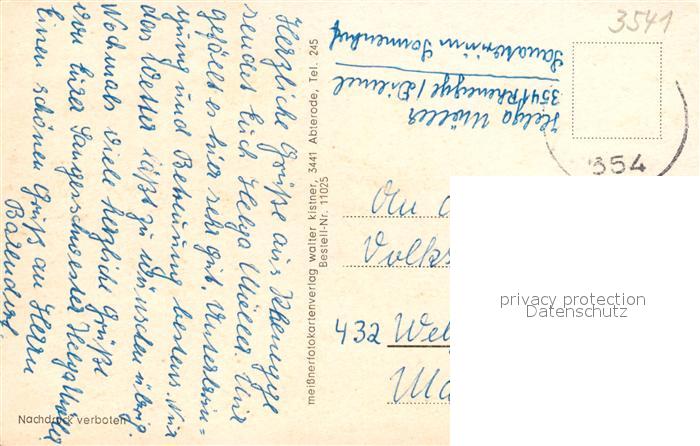 Herzliche Grüße aus Rhenegge
sendet Euch Helga Müller. Mir
gefällt es hier sehr gut. Unterbrin=
gung und Betreuung bestens. Nur
das Wetter läßt zu wünschen übrig.
Nochmals viele herzliche Grüße
von Eurer Sangesschwester Helga Müller
Einen schönen Gruß an Herrn
Barendorf.
Nachdruck verboten
meißnerfotokartenverlag walter kistner, 3441 Abterode, Tel. 245
Bestell-Nr. 11025
Helga Müller
3541 Rhenegge / Diemel
Sanatorium Sonnenhof
3541
354
An
Volks
432 Wel
privacy protection
Datenschutz